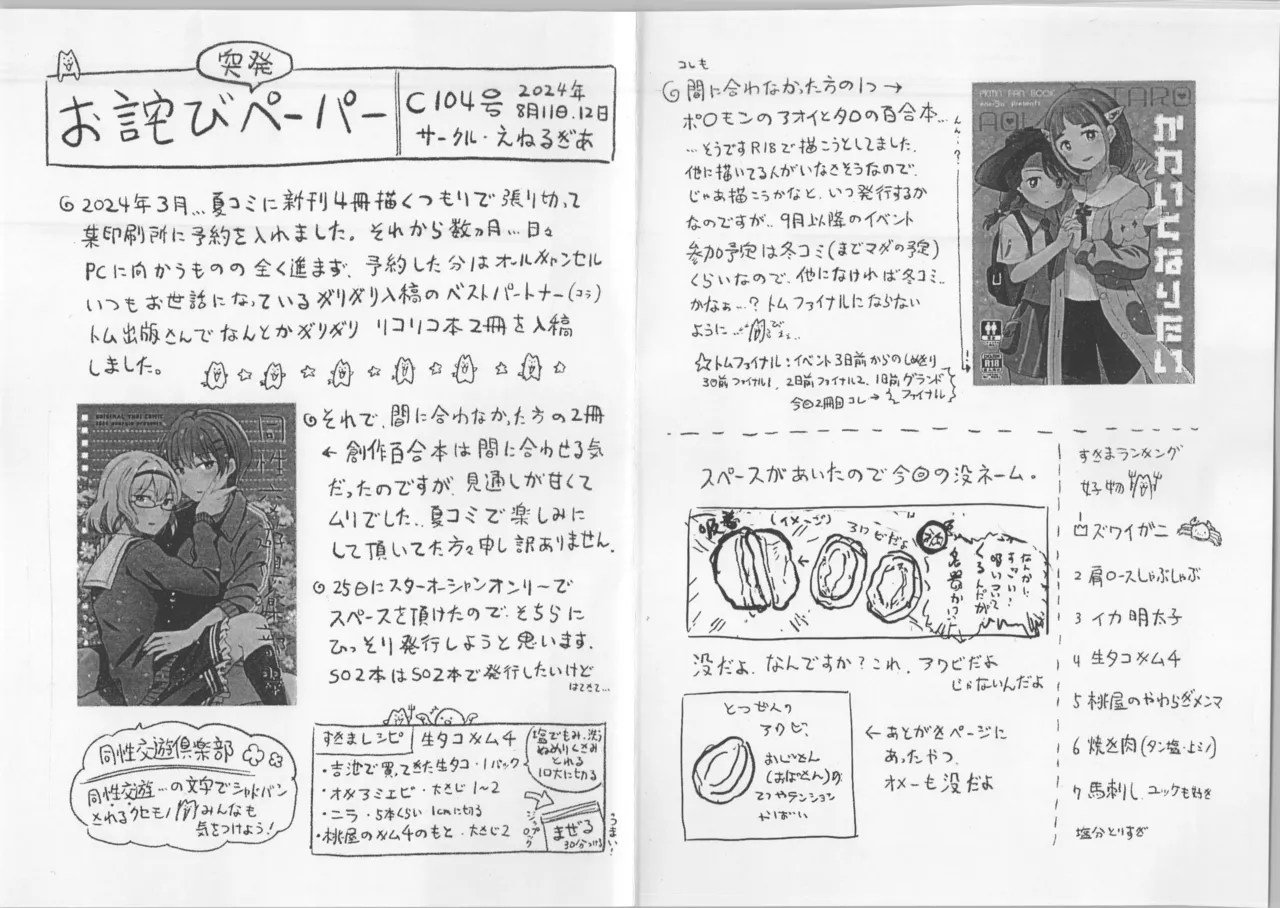 突発
お詫びペーパー
C104号
2024年
8月11日.12日
サークル・えねるぎあ
2024年3月…夏コミに新刊4冊描くつもりで張り切って
某印刷所に予約を入れました。それから数ヵ月…日々
PCに向かうものの全く進まず、予約した分はオールキャンセル
いつもお世話になっているギリギリ入稿のベストパートナー(コラ)
トム出版さんでなんとかギリギリ リコリコ本2冊を入稿
しました。
それで、間に合わなかった方の2冊
← 創作百合本は間に合わせる気
だったのですが、見通しが甘くて
ムリでした…夏コミで楽しみに
して頂いてた方々申し訳ありません。
25日にスターオーシャンオンリーで
スペースを頂けたので、そちらに
ひっそり発行しようと思います。
SO2本はSO2本で発行したいけど
はてさて…
ORIGINAL YURI COMIC
同性交遊倶楽部
同性交遊倶楽部
同性交遊…の文字でシャドバン
されるクセモノ みんなも
気をつけよう!
すきまレシピ
生タコキムチ
・吉池で買ってきた生タコ・1パック
・オキアミエビ・大さじ1~2
・ニラ・5本くらい 1cmに切る
・桃屋のキムチのもと・大さじ2
塩でもみ、洗う
ぬめりくさみ
とれる
1口大に切る
ジップロック
まぜる
30分つける
うまい!
コレも
間に合わなかった方の1つ →
ポ○モンのアオイとタロの百合本…
…そうですR18で描こうとしてました。
他に描いてる人がいなさそうなので、
じゃあ描こうかなと、いつ発行するか
なのですが…9月以降のイベント
参加予定は冬コミ(まだマダの予定)
くらいなので、他になければ冬コミ..
かなぁ…?トムファイナルにならない
ように…
☆トムファイナル:イベント3日前からのしめきり
3日前ファイナル1、2日前ファイナル2、1日前グランド
ファイナル
今回2冊目コレ→
FAN BOOK
TARO
AOI
かわいくなりたい
R18
スペースがあいたので今回の没ネーム。
吸着
(イメージ)
アワビだよ
なんかに
すっごい!
吸いついて
くるんだが
没だよ、なんですか?これ、アワビだよ
じゃないんだよ
とつぜんの
アワビ。
おじさん
(おばさん)の
ってやテンション
かばい
← あとがきページに
あったやつ。
オメーも没だよ
すきまランキング
好物
ズワイガニ
2 肩ロースしゃぶしゃぶ
3 イカ明太子
4 生タコキムチ
5 桃屋のやわらぎメンマ
6 焼き肉(タン塩・上ミノ)
7 馬刺し、ユッケも好き
塩分とりすぎ